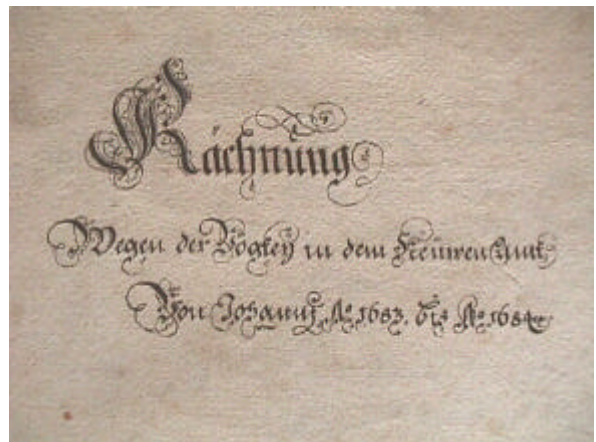 Rächnung
Wegen der Vögtey in dem Neüwen Amt,
Von Johanni, Aº. 1683. bis Aº. 1684.